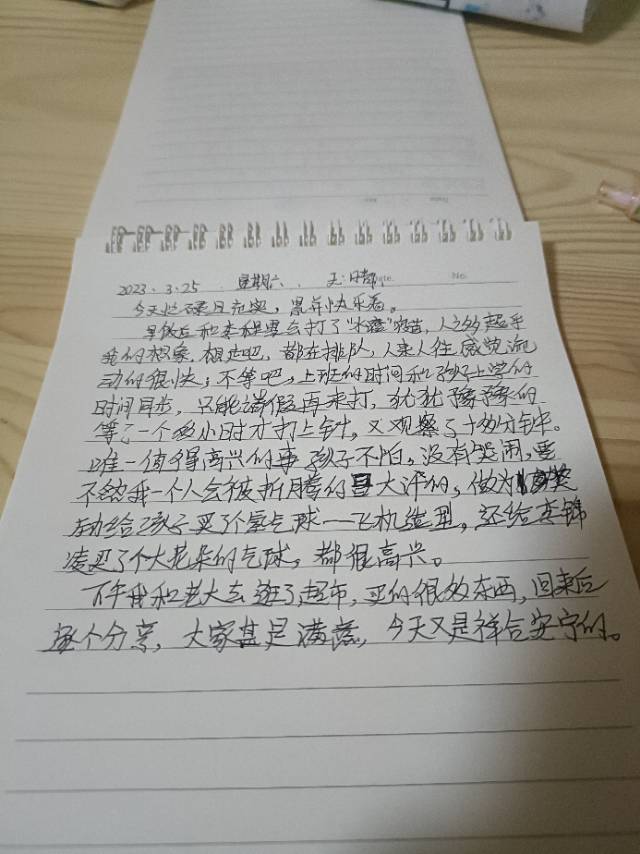 2023.3.25 星期六 天:晴
今天忙碌且充实,累并快乐着。
早饭后和去打了"水痘"疫苗,人之多超乎
我的想象.想走吧,都在排队,人来人往感觉流
动的很快;不等吧,上班的时间和孩子上学的
时间同步,只能请假再来打,犹犹豫豫的
等了一个多小时才打上针,又观察了十多分钟。
唯一值得高兴的事孩子不怕,没有哭闹,要
不然我一个人会被折腾的够大评的,做为奖
励给孩子买了个氢气球——飞机造型,还给李锦
凌买了个大花朵的气球,都很高兴。
下午我和老大去逛了超市,买的很多东西,回来后
逐个分享,大家甚是满意,今天又是祥合安宁的。